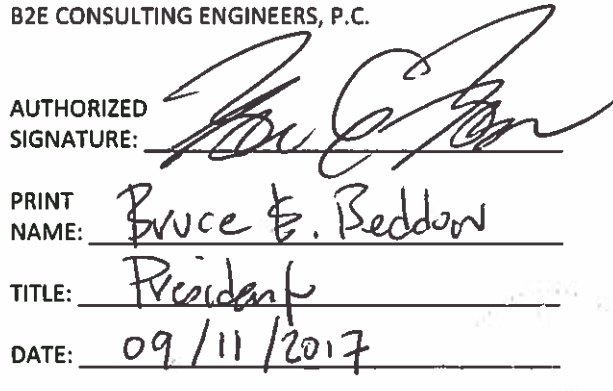 B2E CONSULTING ENGINEERS, P.C.
AUTHORIZED
SIGNATURE:
PRINT
NAME: Bruce E. Beddow
TITLE: President
DATE: 09/11/2017